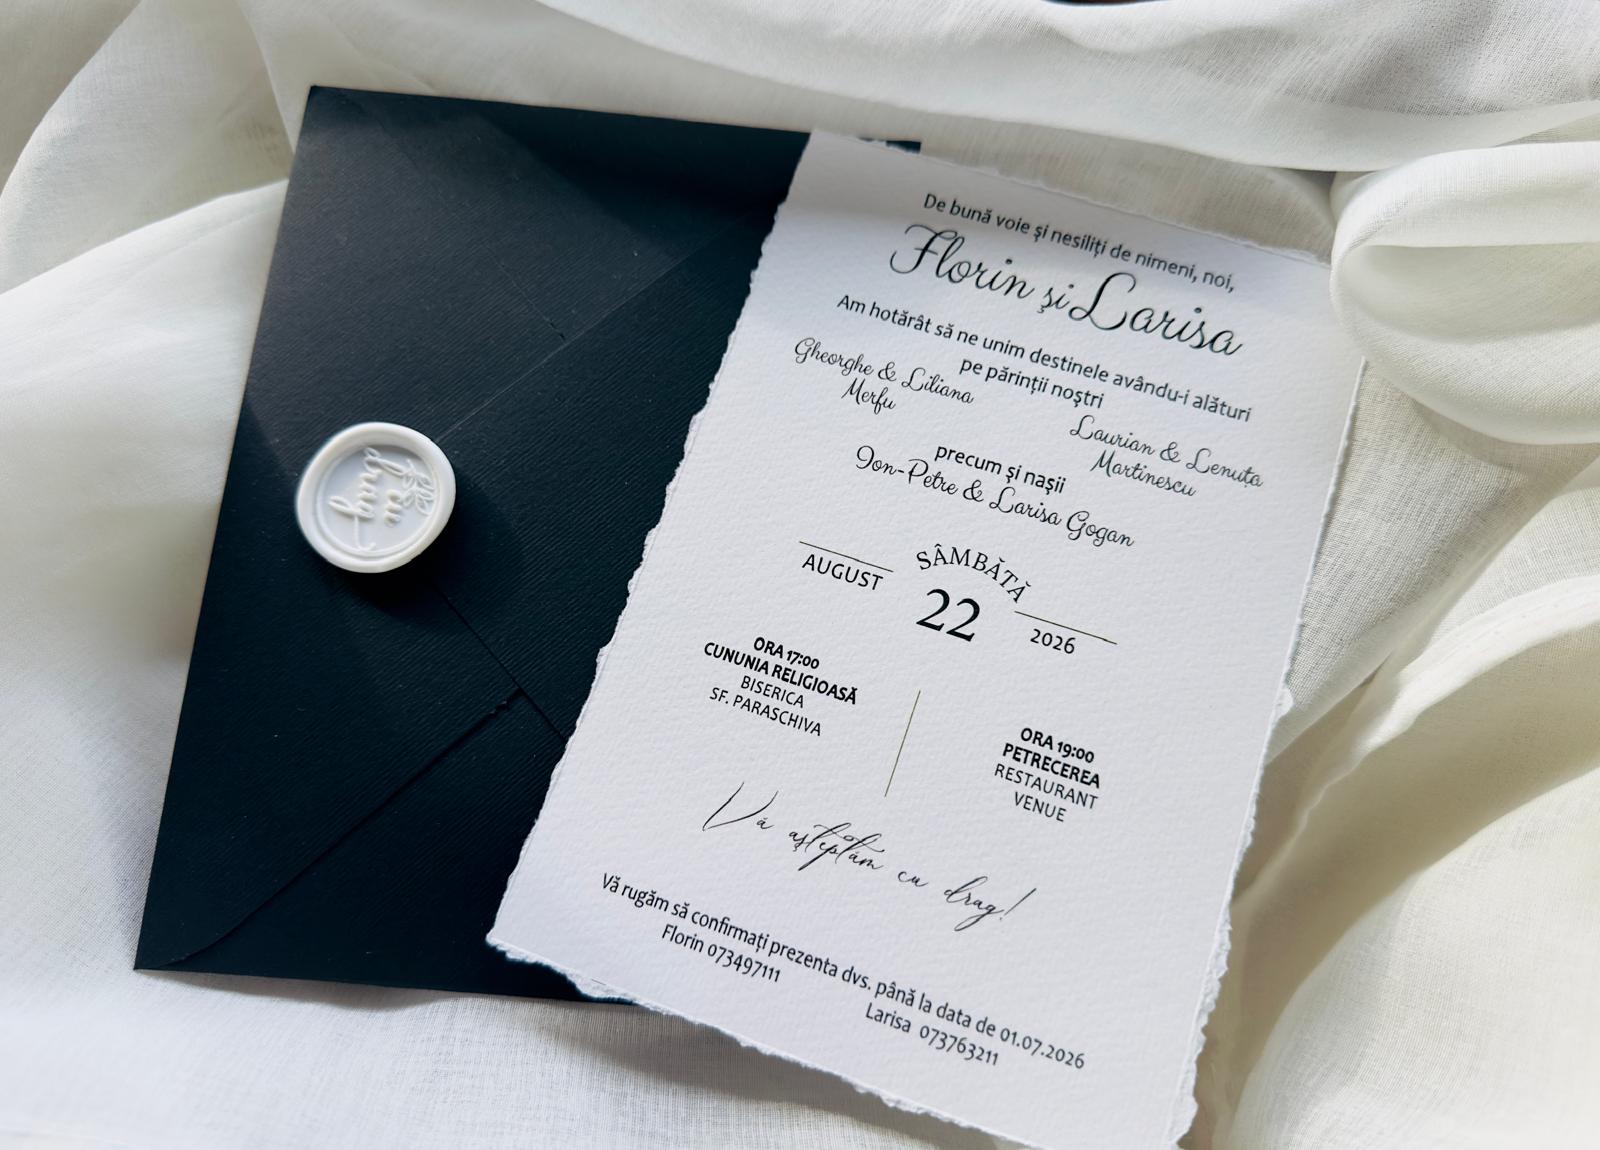 De bună voie și nesiliți de nimeni, noi,
Florin și Larisa
Am hotărât să ne unim destinele avându-i alături
pe părinții noștri
Gheorghe & Liliana
Merfu
Laurian & Lenuța
Martinescu
precum și nașii
Ion-Petre & Larisa Gogan
SÂMBĂTĂ
AUGUST
22
2026
ORA 17:00
CUNUNIA RELIGIOASĂ
BISERICA
SF. PARASCHIVA
ORA 19:00
PETRECEREA
RESTAURANT
VENUE
Vă așteptăm cu drag!
Vă rugăm să confirmați prezenta dvs. până la data de 01.07.2026
Florin 073497111
Larisa 073763211
cu
drag